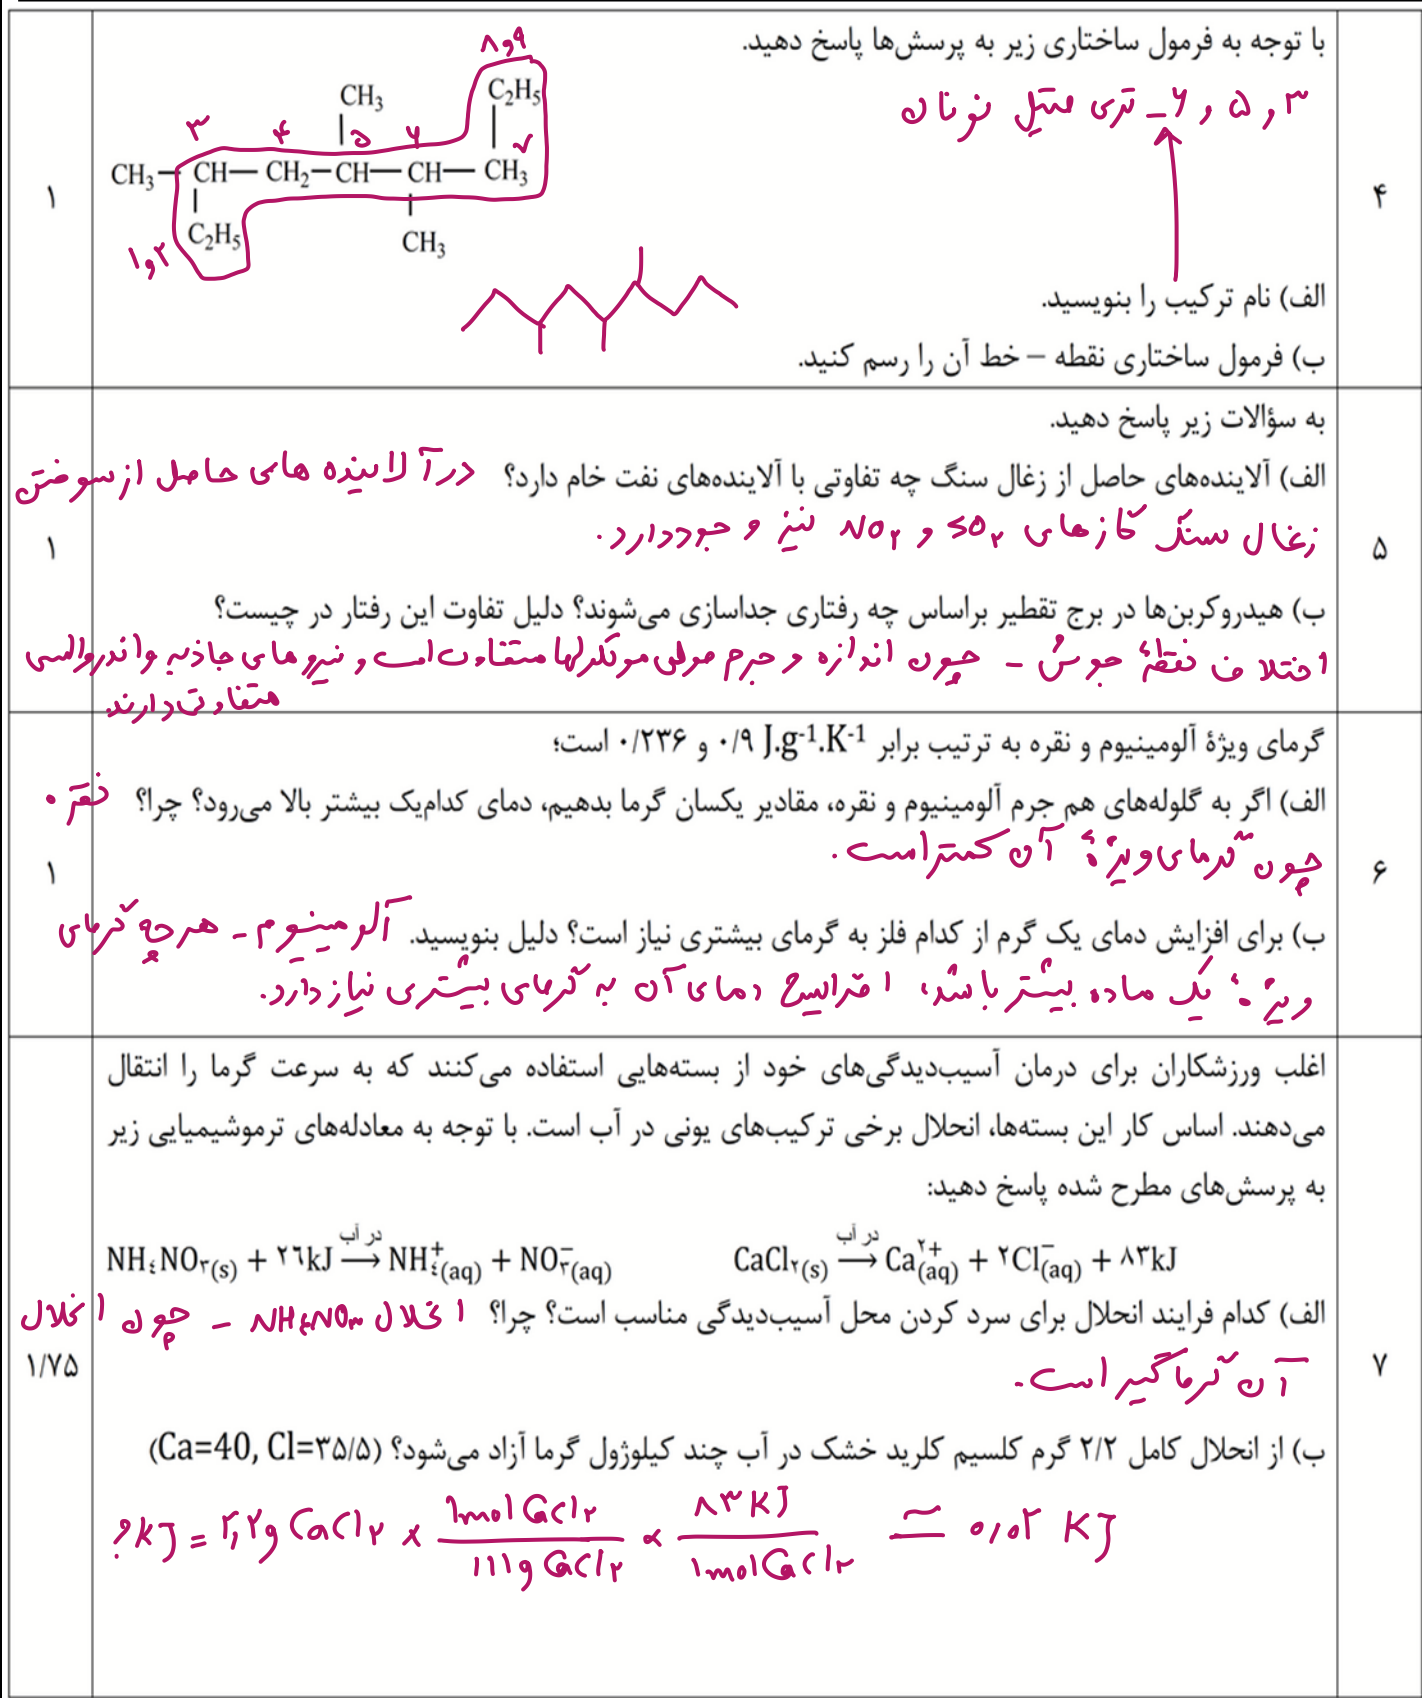 با توجه به فرمول ساختاری زیر به پرسش‌ها پاسخ دهید.
۳ , ۵ , ۶ - تری متیل نونان
۸و۹
CH3 C2H5
۳ ۴ ۵ ۶ ۷
CH3 — CH — CH2 — CH — CH — CH3
C2H5 CH3
۱و۲
۱
۴
الف) نام ترکیب را بنویسید.
ب) فرمول ساختاری نقطه – خط آن را رسم کنید.
به سؤالات زیر پاسخ دهید.
الف) آلاینده‌های حاصل از زغال سنگ چه تفاوتی با آلاینده‌های نفت خام دارد؟ در آلاینده های حاصل از سوختن
زغال سنگ گازهای SO۲ و NO۲ نیز وجود دارد.
۱
۵
ب) هیدروکربن‌ها در برج تقطیر براساس چه رفتاری جداسازی می‌شوند؟ دلیل تفاوت این رفتار در چیست؟
اختلاف نقطهٔ جوش - چون اندازه و جرم مولی مولکولها متفاوت است و نیروهای جاذبه واندروالسی
متفاوتی دارند.
گرمای ویژهٔ آلومینیوم و نقره به ترتیب برابر J.g-1.K-1 ۰/۹ و ۰/۲۳۶ است؛
الف) اگر به گلوله‌های هم جرم آلومینیوم و نقره، مقادیر یکسان گرما بدهیم، دمای کدام‌یک بیشتر بالا می‌رود؟ چرا؟ نقره
چون گرمای ویژهٔ آن کمتر است.
۱
۶
ب) برای افزایش دمای یک گرم از کدام فلز به گرمای بیشتری نیاز است؟ دلیل بنویسید. آلومینیوم - هرچه گرمای
ویژهٔ یک ماده بیشتر باشد، افزایش دمای آن به گرمای بیشتری نیاز دارد.
اغلب ورزشکاران برای درمان آسیب‌دیدگی‌های خود از بسته‌هایی استفاده می‌کنند که به سرعت گرما را انتقال
می‌دهند. اساس کار این بسته‌ها، انحلال برخی ترکیب‌های یونی در آب است. با توجه به معادله‌های ترموشیمیایی زیر
به پرسش‌های مطرح شده پاسخ دهید:
NH٤NO٣(s) + ٢٦kJ در آب ⟶ NH٤+(aq) + NO٣−(aq) CaCl٢(s) در آب ⟶ Ca٢+(aq) + ٢Cl−(aq) + ٨٣kJ
الف) کدام فرایند انحلال برای سرد کردن محل آسیب‌دیدگی مناسب است؟ چرا؟ انحلال NH۴NO۳ - چون انحلال
آن گرماگیر است.
۱/۷۵
۷
ب) از انحلال کامل ۲/۲ گرم کلسیم کلرید خشک در آب چند کیلوژول گرما آزاد می‌شود؟ (Ca=40, Cl=۳۵/۵)
?kJ = ۲,۲g CaCl۲ × ۱mol CaCl۲ / ۱۱۱g CaCl۲ × ۸۳ kJ / ۱mol CaCl۲ ≃ ۰,۰۲ kJ